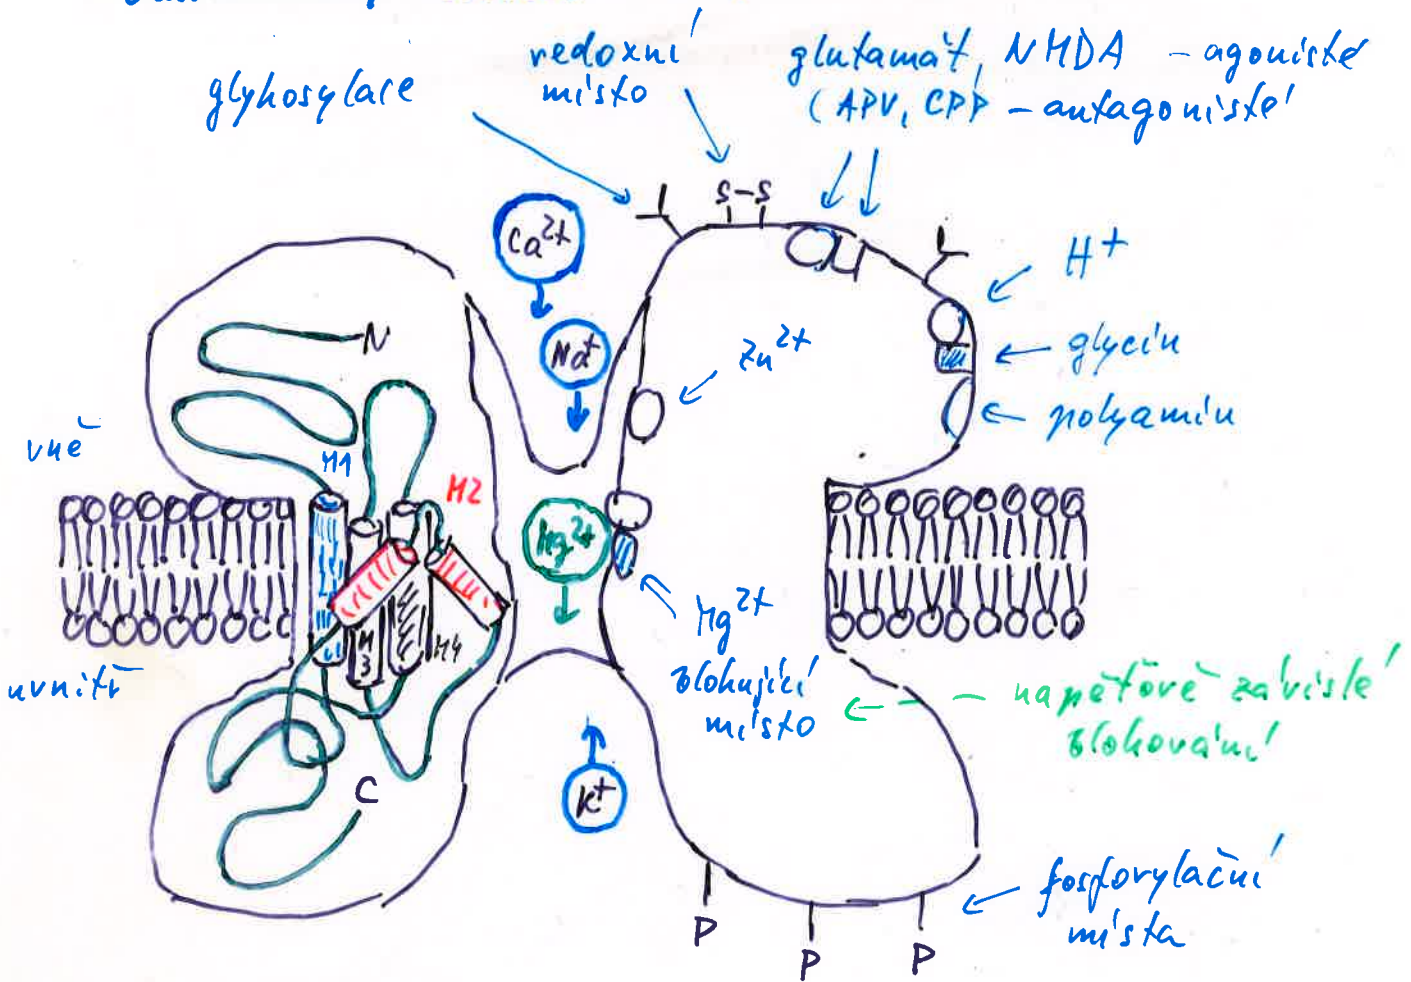 redoxní
místo
glykosylace
glutamát, NMDA – agonisté
(APV, CPP – antagonisté
S–S
Ca²⁺
H⁺
Na⁺
Zn²⁺
glycin
polyamin
N
vně
M1
M2
Mg²⁺
M3
M4
Mg²⁺
blokující
místo
← – – napěťově závislé
blokování
uvnitř
K⁺
C
fosforylační
místa
P
P
P